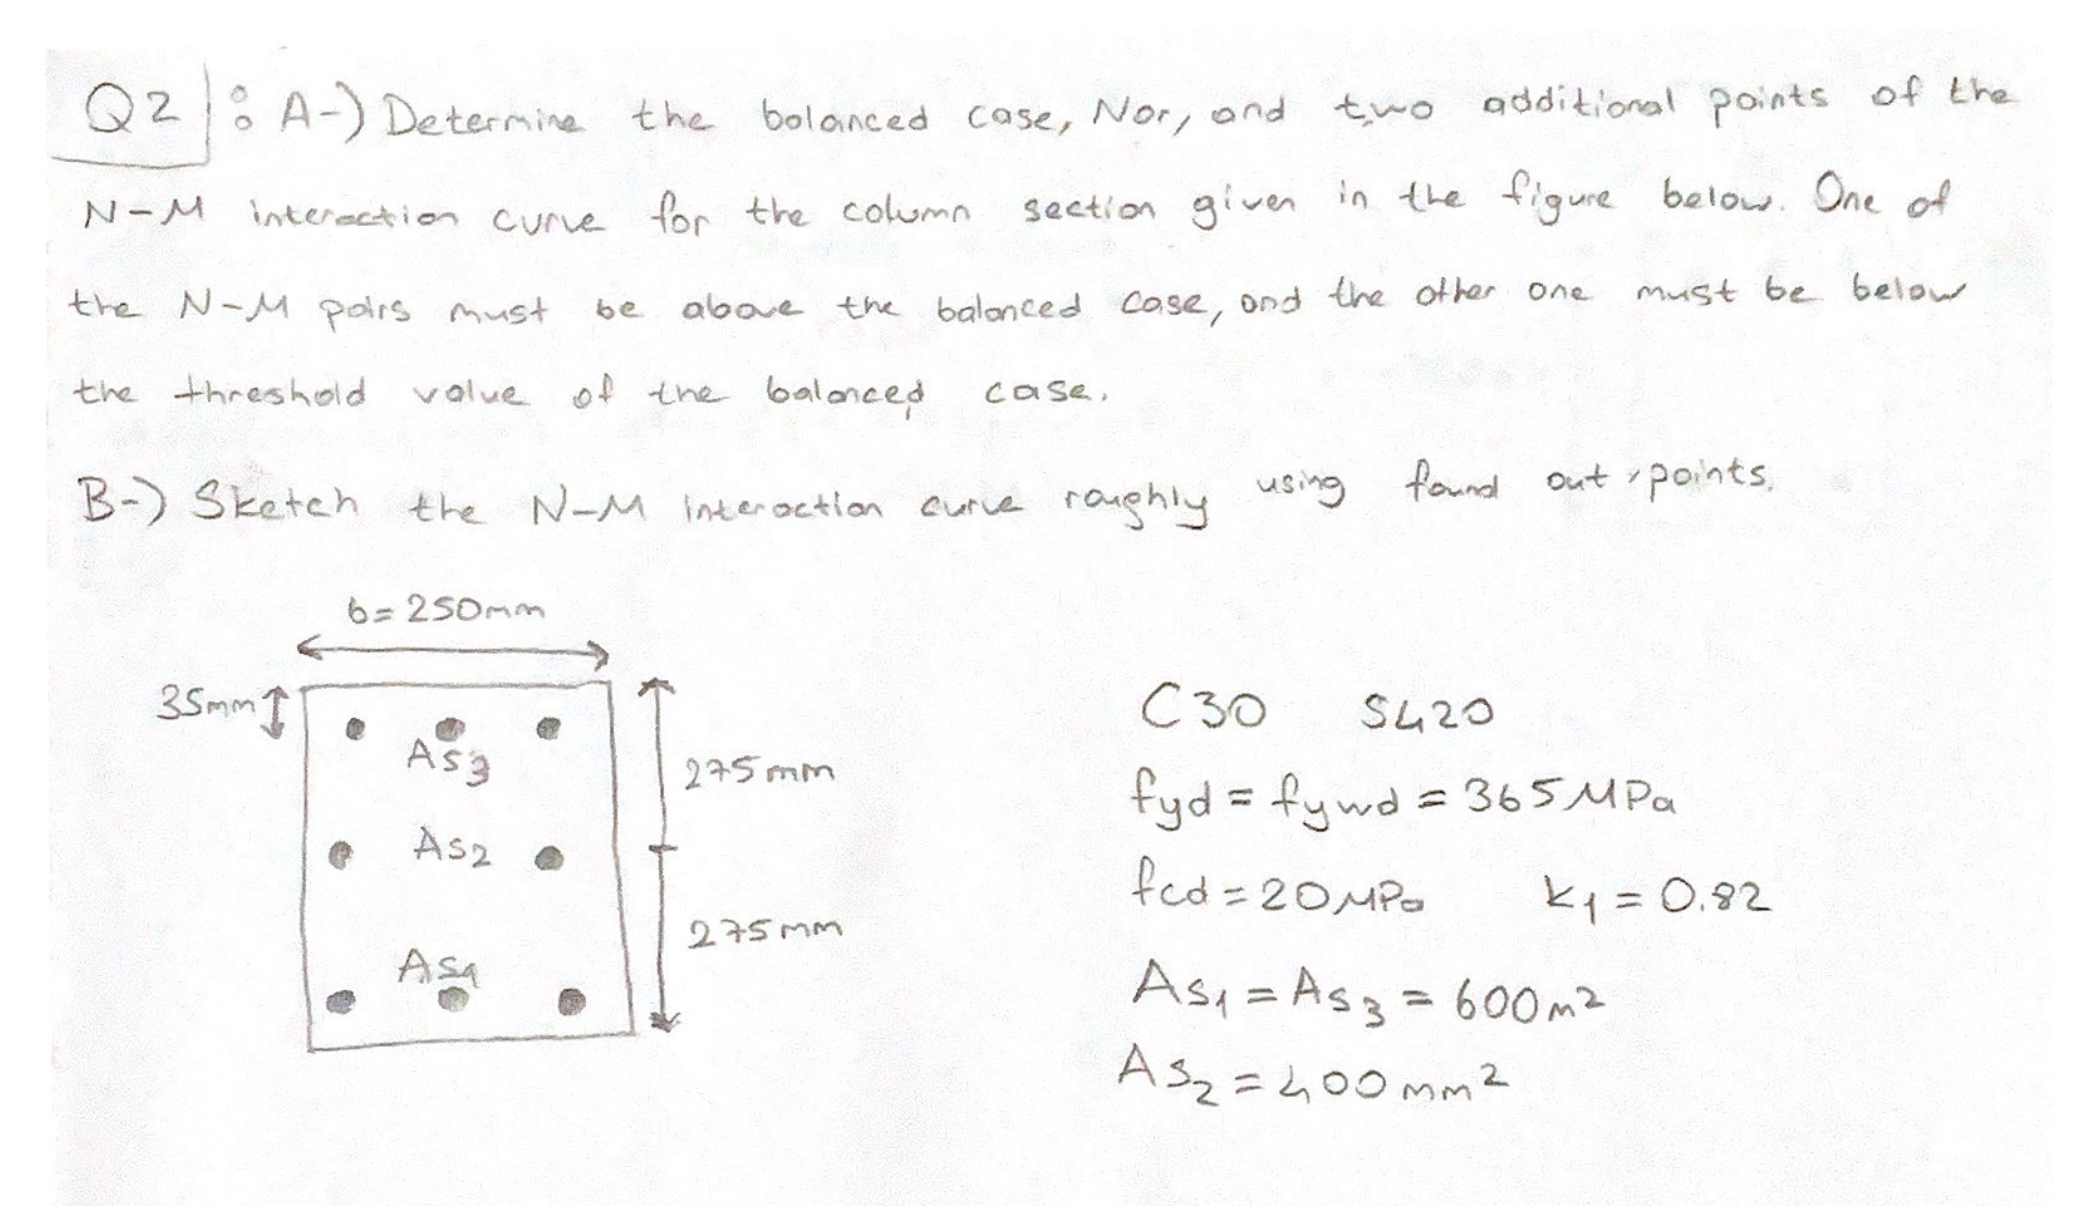 Q2: A-) Determine the balanced case, Nor, and two additional points of the
N-M interaction curve for the column section given in the figure below. One of
the N-M pairs must be above the balanced case, and the other one must be below
the threshold value of the balanced case.
B-) Sketch the N-M interaction curve roughly using found out points.
b=250mm
35mm
As3
275mm
As2
275mm
As1
C30 S420
fyd = fywd = 365MPa
fcd=20MPa k1=0.82
As1=As3=600m2
As2=400mm2